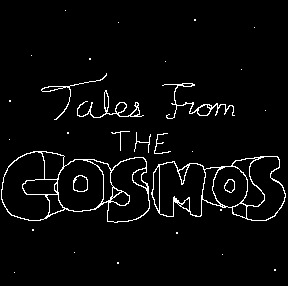 Tales From
THE
COSMOS